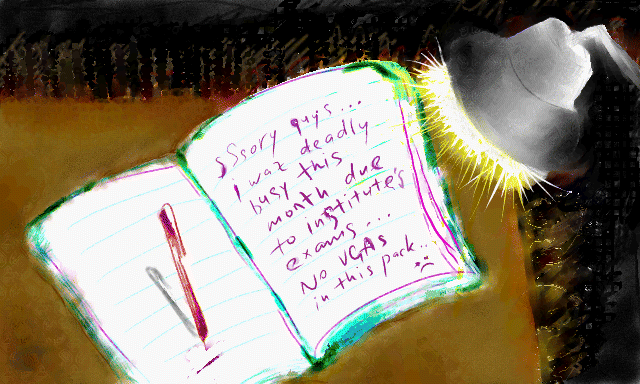 sSsory guys...
I waz deadly
busy this
month due
to institute's
exams...
No VGAs
in this pack...